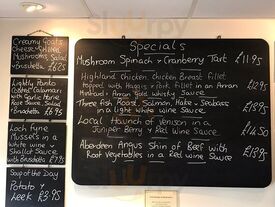 Creamy Goats
Cheese + Chilled
Mushrooms Salad
+ Bruschetta £6.25
Lightly Panko
Coated Calamari
with Garlic Mayo
Rose Sauce, Salad
+ Bruschetta £6.95
Loch Fyne
Mussels in a
White wine +
Shallot Sauce
with Bruschetta £6.95
Soup of the Day
Potato &
Leek £3.95
Specials
Mushroom Spinach & Cranberry Tart £11.95
Highland Chicken, chicken Breast Fillet
Topped with Haggis + Pork fillet in an Arran
Mustard + Arran Gold Whisky Sauce £12.95
Three fish Roast, Salmon, Hake + Seabass
in a light white wine Sauce £13.95
Local Haunch of Venison in a
Juniper Berry & Red Wine Sauce £14.50
Aberdeen Angus Shin of Beef with
Root Vegetables in a Red wine Sauce £13.95